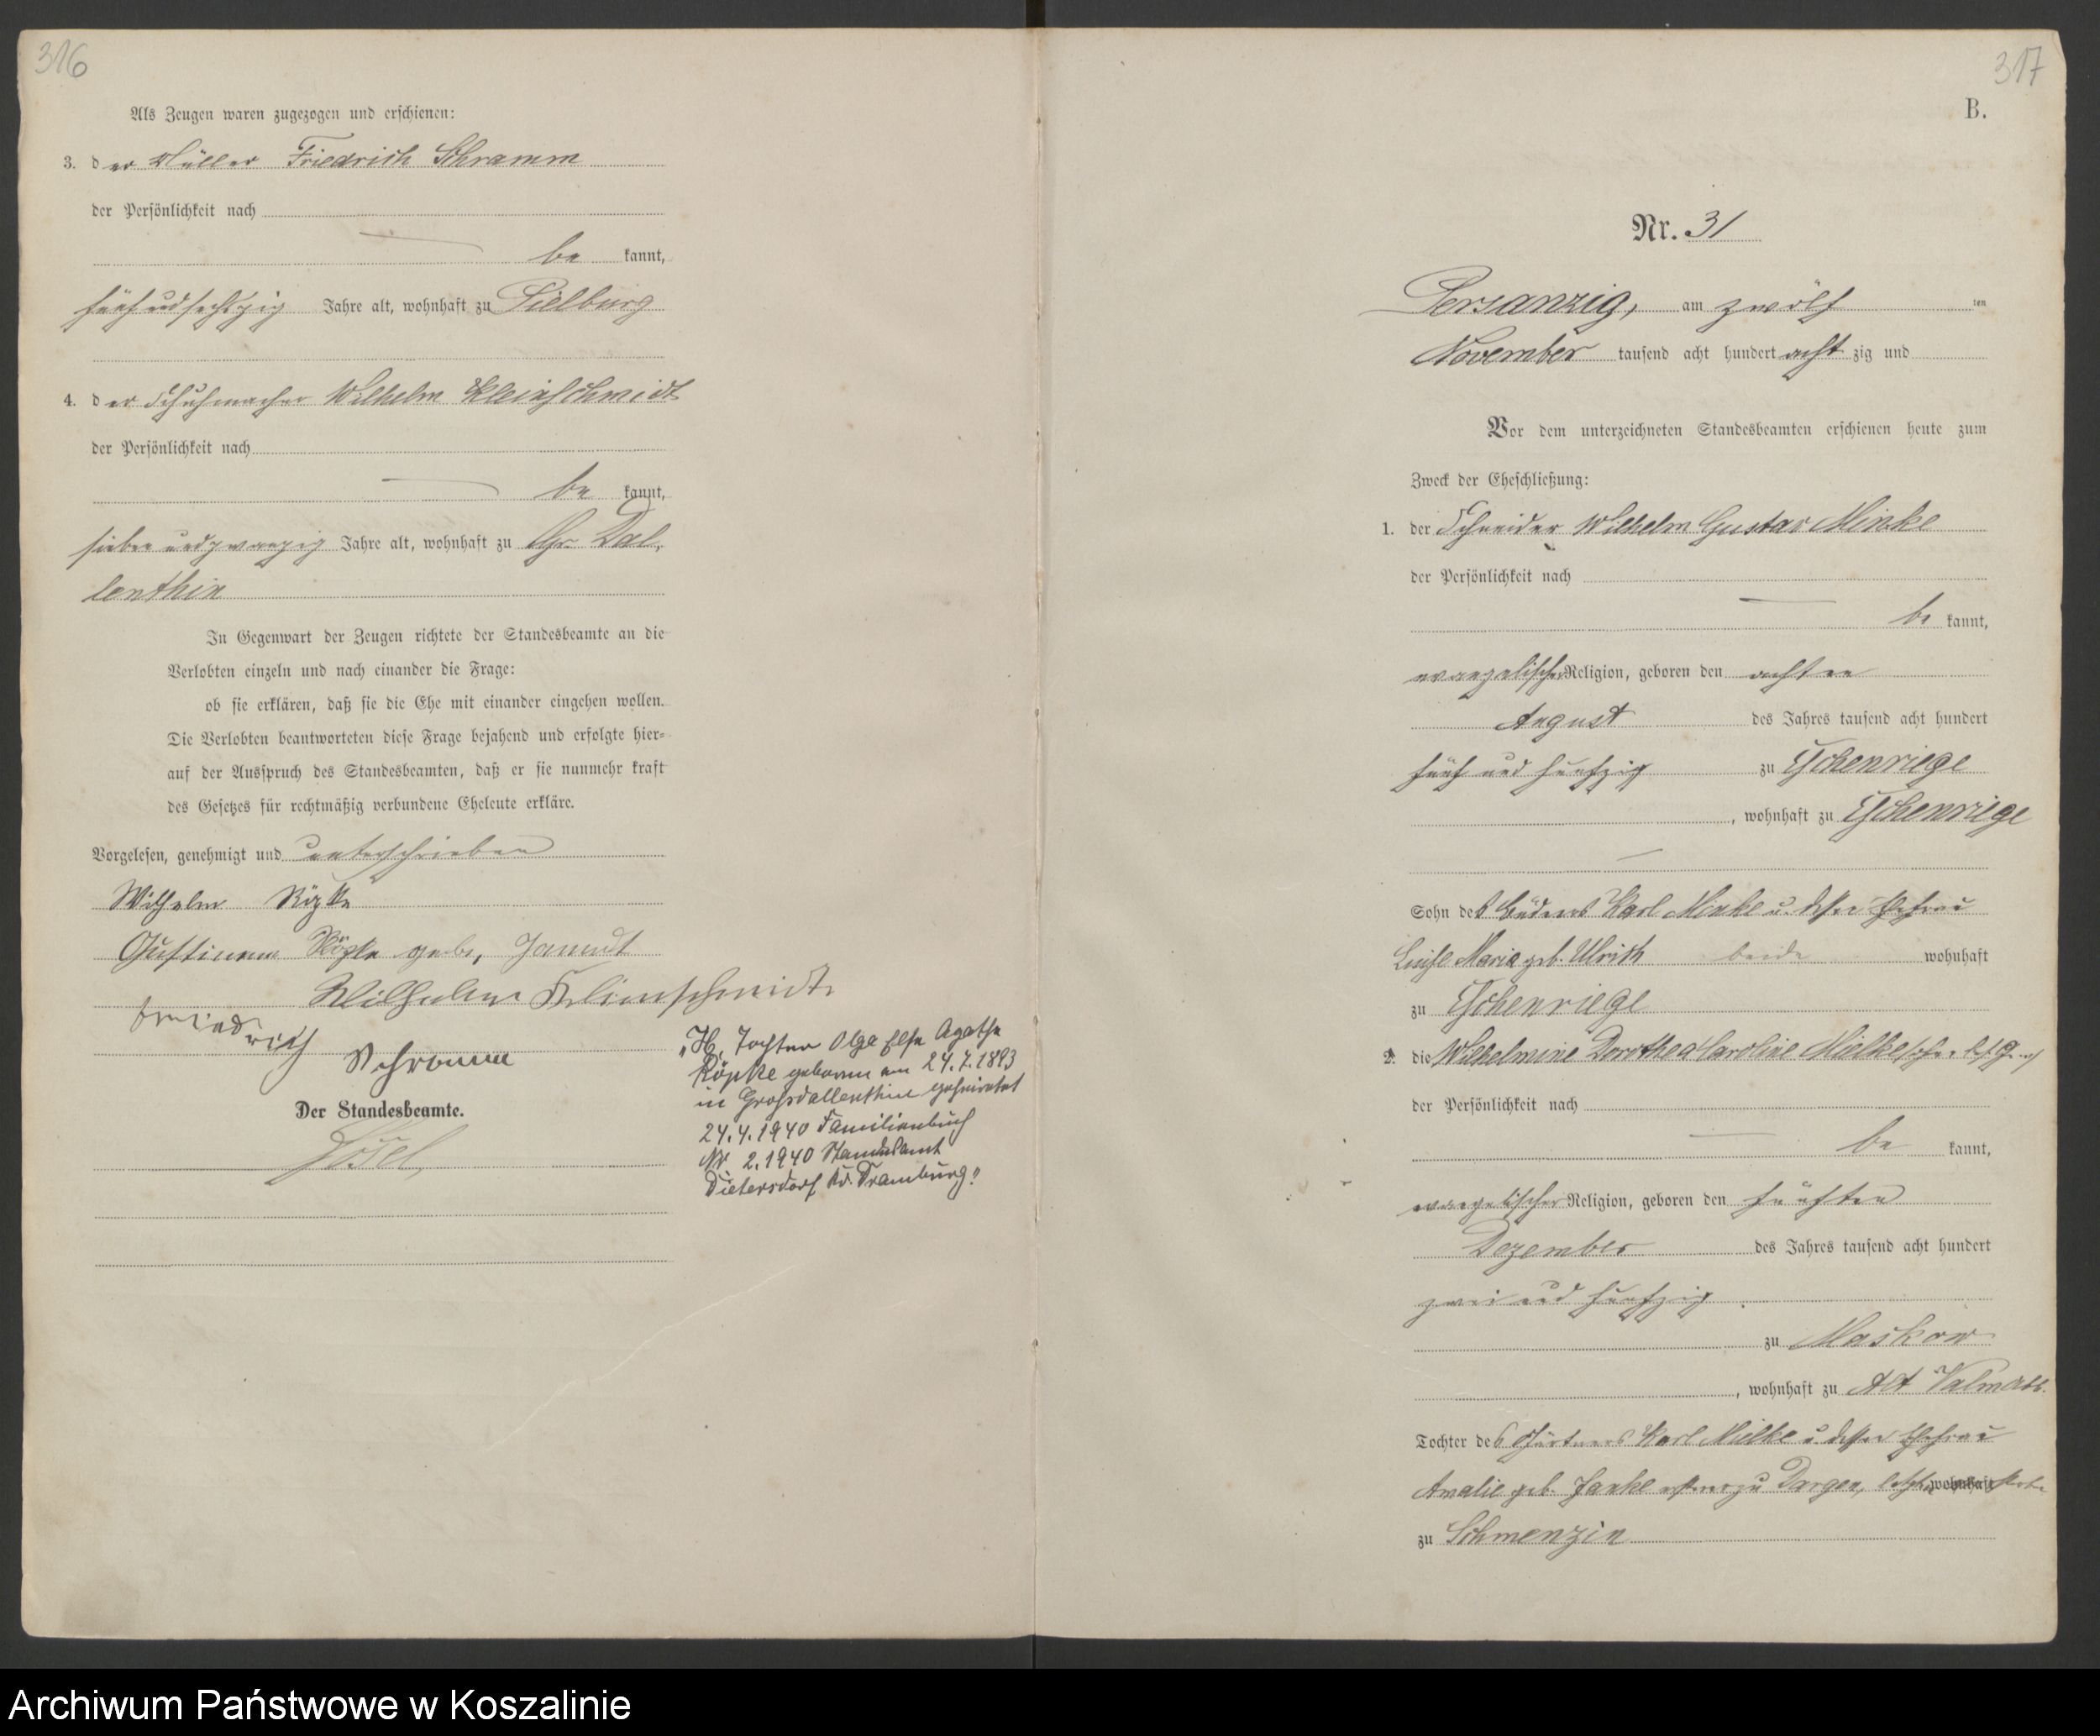 316
Als Zeugen waren zugezogen und erschienen:
3. der Müller Friedrich Schramm
der Persönlichkeit nach
be kannt,
fünfundsechszig Jahre alt, wohnhaft zu Pielburg
4. der Schuhmacher Wilhelm Kleinschmidt
der Persönlichkeit nach
be kannt,
siebenundzwanzig Jahre alt, wohnhaft zu Gr. Dal-
lenthin
In Gegenwart der Zeugen richtete der Standesbeamte an die
Verlobten einzeln und nach einander die Frage:
ob sie erklären, daß sie die Ehe mit einander eingehen wollen.
Die Verlobten beantworteten diese Frage bejahend und erfolgte hier-
auf der Ausspruch des Standesbeamten, daß er sie nunmehr kraft
des Gesetzes für rechtmäßig verbundene Eheleute erkläre.
Vorgelesen, genehmigt und unterschrieben
Wilhelm Röpke
Justine Röpke geb.
Wilhelm Kleinschmidt
Friedrich
Schramm
Der Standesbeamte.
„H. Tochter Olga Else Agathe
Röpke geboren am 24.7.1893
in Grossdallenthin geheiratet
24.4.1940 Familienbuch
Nr 2.1940 Standesamt
Dietersdorf Kr. Dramburg."
317
B.
Nr. 31
Persanzig, am zwölf ten
November tausend acht hundert acht zig und
Vor dem unterzeichneten Standesbeamten erschienen heute zum
Zweck der Eheschließung:
1. der Schneider Wilhelm Gustav Minke
der Persönlichkeit nach
be kannt,
evangelischer Religion, geboren den achten
August des Jahres tausend acht hundert
fünf und fünfzig zu Eschenriege
, wohnhaft zu Eschenriege
Sohn des Büdners Karl Minke u. dessen Ehefrau
Luise Maria geb. Ulrich beide wohnhaft
zu Eschenriege
2. die Wilhelmine Dorothea Caroline Mielke
der Persönlichkeit nach
be kannt,
evangelischer Religion, geboren den fünften
Dezember des Jahres tausend acht hundert
zwei und fünfzig
zu Naskow
, wohnhaft zu Alt Valm
Tochter des Gärtners Karl Mielke u. dessen Ehefrau
Amalie geb. Janke zu Dargen, wohnhaft
zu Schmenzin
Archiwum Państwowe w Koszalinie